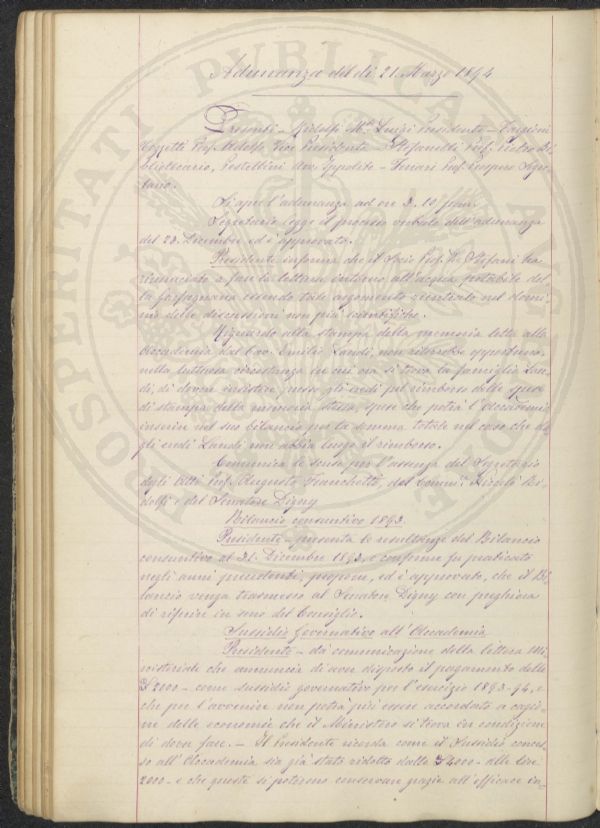 Adunanza del dì 21. Marzo 1894
Presenti – Ridolfi M.se Luigi Presidente – Targioni
Tozzetti Prof. Adolfo, Vice Presidente – Stefanelli Prof. Pietro Bi=
bliotecario, Pestellini Avv. Ippolito – Ferrari Prof. Prospero Segre
tario.
Si apre l'adunanza ad ore 3. 10 pom.
Segretario legge il processo verbale dell'adunanza
del 23. Dicembre ed è approvato.
Presidente informa che il Socio Prof. De Stefani ha
rinunciato a fare la lettura intorno all'acqua potabile del
la Garfagnana essendo tale argomento nel domi=
nio delle discussioni non più scientifiche.
Riguardo alla stampa della memoria letta alla
Accademia dal Cav. Emilio Landi, non riterrebbe opportuno
nella luttuosa circostanza in cui ora si trova la famiglia Lan=
di, di dovere insistere presso gli eredi pel rimborso delle spese
di stampa della memoria stessa, spese che potrà l'Accademia
inserire nel suo bilancio per la somma totale nel caso che da
gli eredi Landi non abbia luogo il rimborso.
Comunica le scuse per l'assenza del Segretario
degli Atti Prof. Augusto Franchetti, del Comm. Niccolò Ri=
dolfi e del Senatore Digny
Bilancio consuntivo 1893.
Presidente – presenta le resultanze del Bilancio
consuntivo al 31. Dicembre 1893, e conforme fu praticato
negli anni precedenti, propone, ed è approvato, che il Bi
lancio venga trasmesso al Senatore Digny con preghiera
di riferire in seno del Consiglio.
Sussidio governativo all'Accademia
Presidente – dà comunicazione della lettera Mi
nisteriale che annuncia di aver disposto il pagamento delle
£ 2000 – come sussidio governativo per l'esercizio 1893-94, e
che per l'avvenire non potrà più essere accordato a cagio=
ne delle economie che il Ministero si trova in condizione
di dover fare. – Il Presidente ricorda come il Sussidio conces=
so all'Accademia sia già stato ridotto dalle £ 4000 – alle lire
2000 – e che queste si poterono conservare grazie all'efficace in=
PROSPERITATI PUBLICAE AUGENDAE